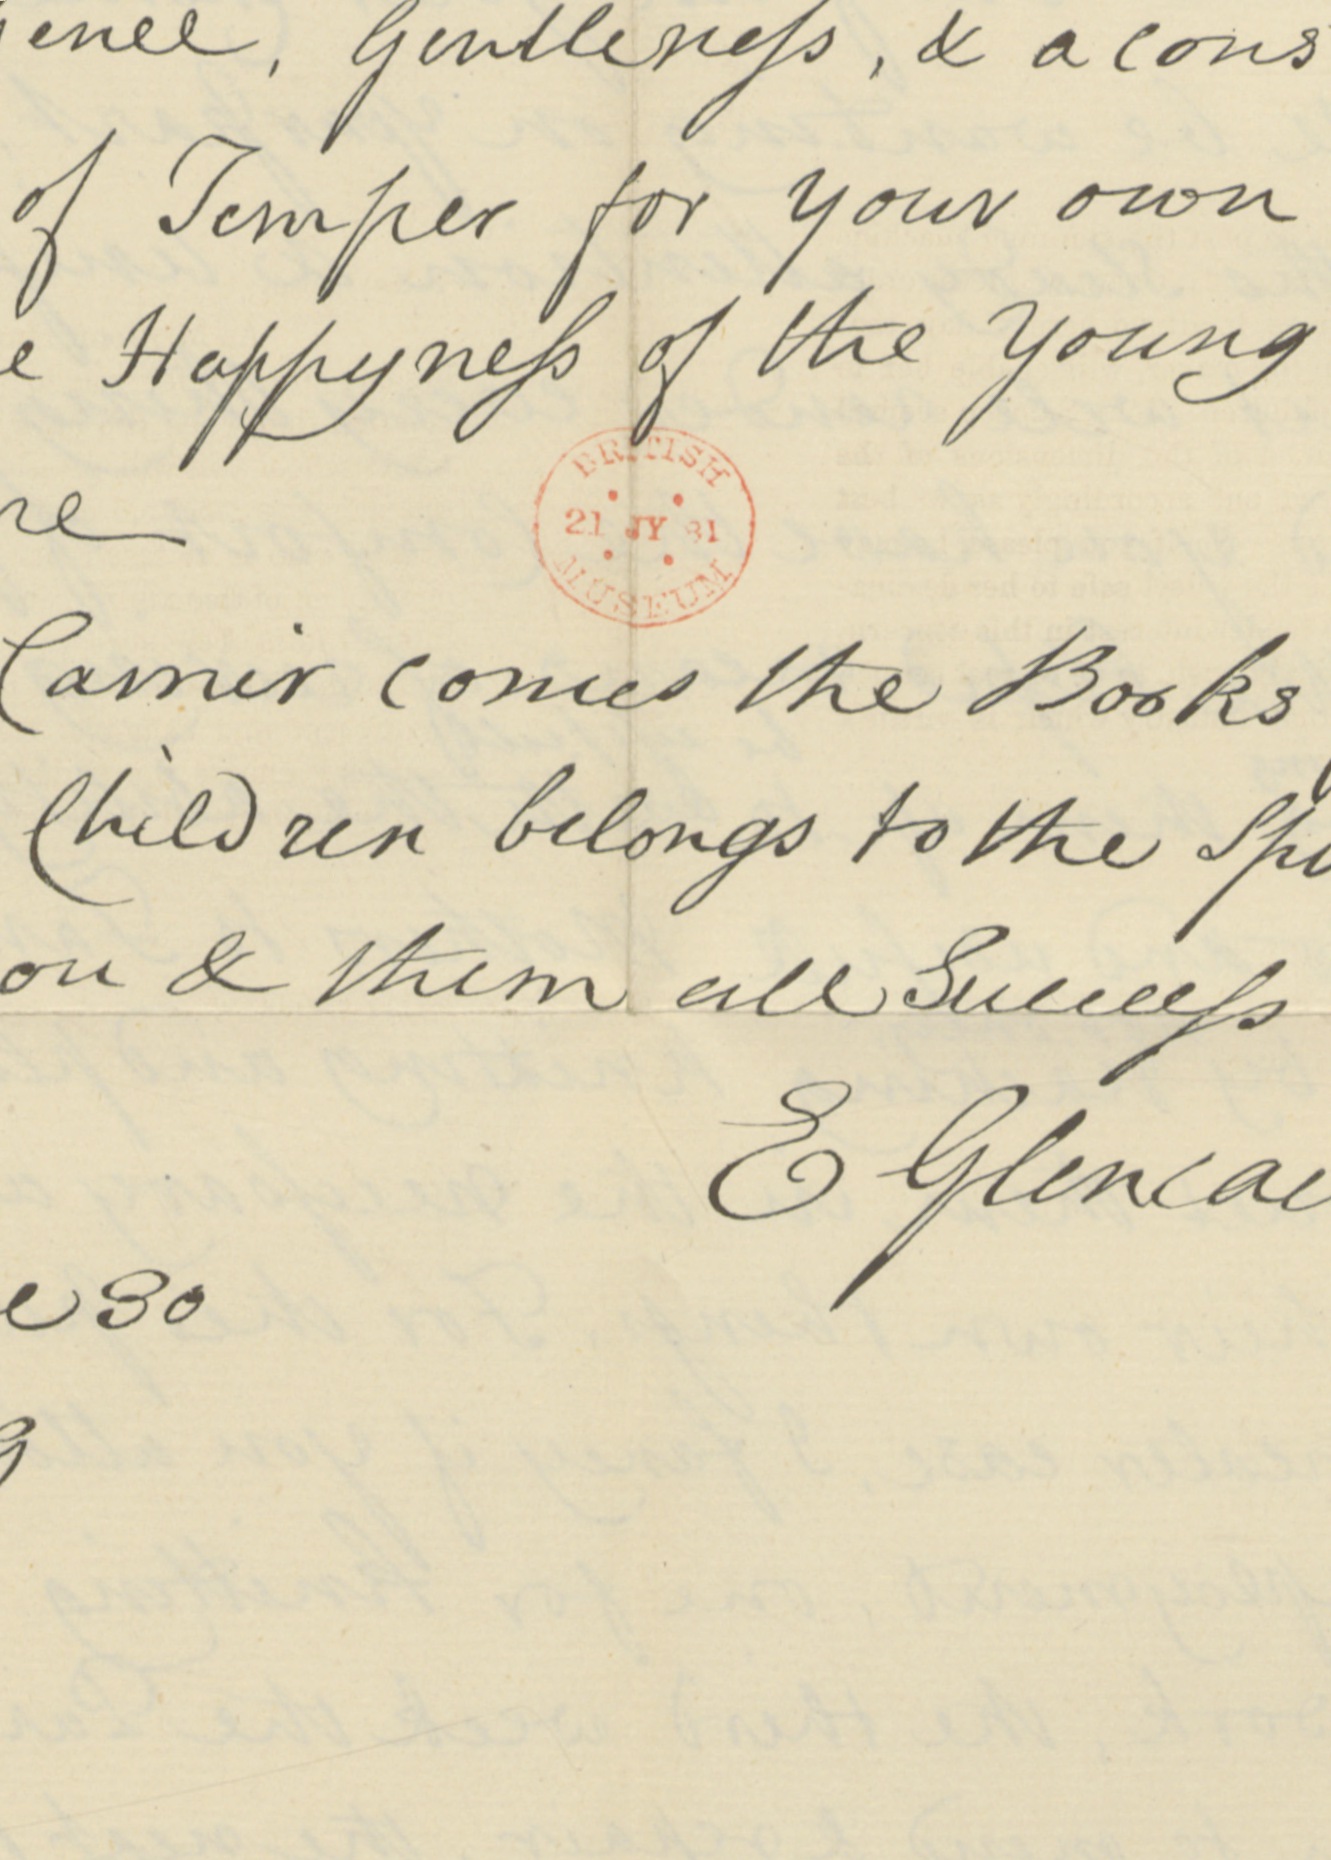 , Gentleness, & a cons
of Temper for your own
e Happyness of the Young
BRITISH
21 JY 81
MUSEUM
Carrier comes the Books
Children belongs to the
ou & them all Success
E Glencai
e 30